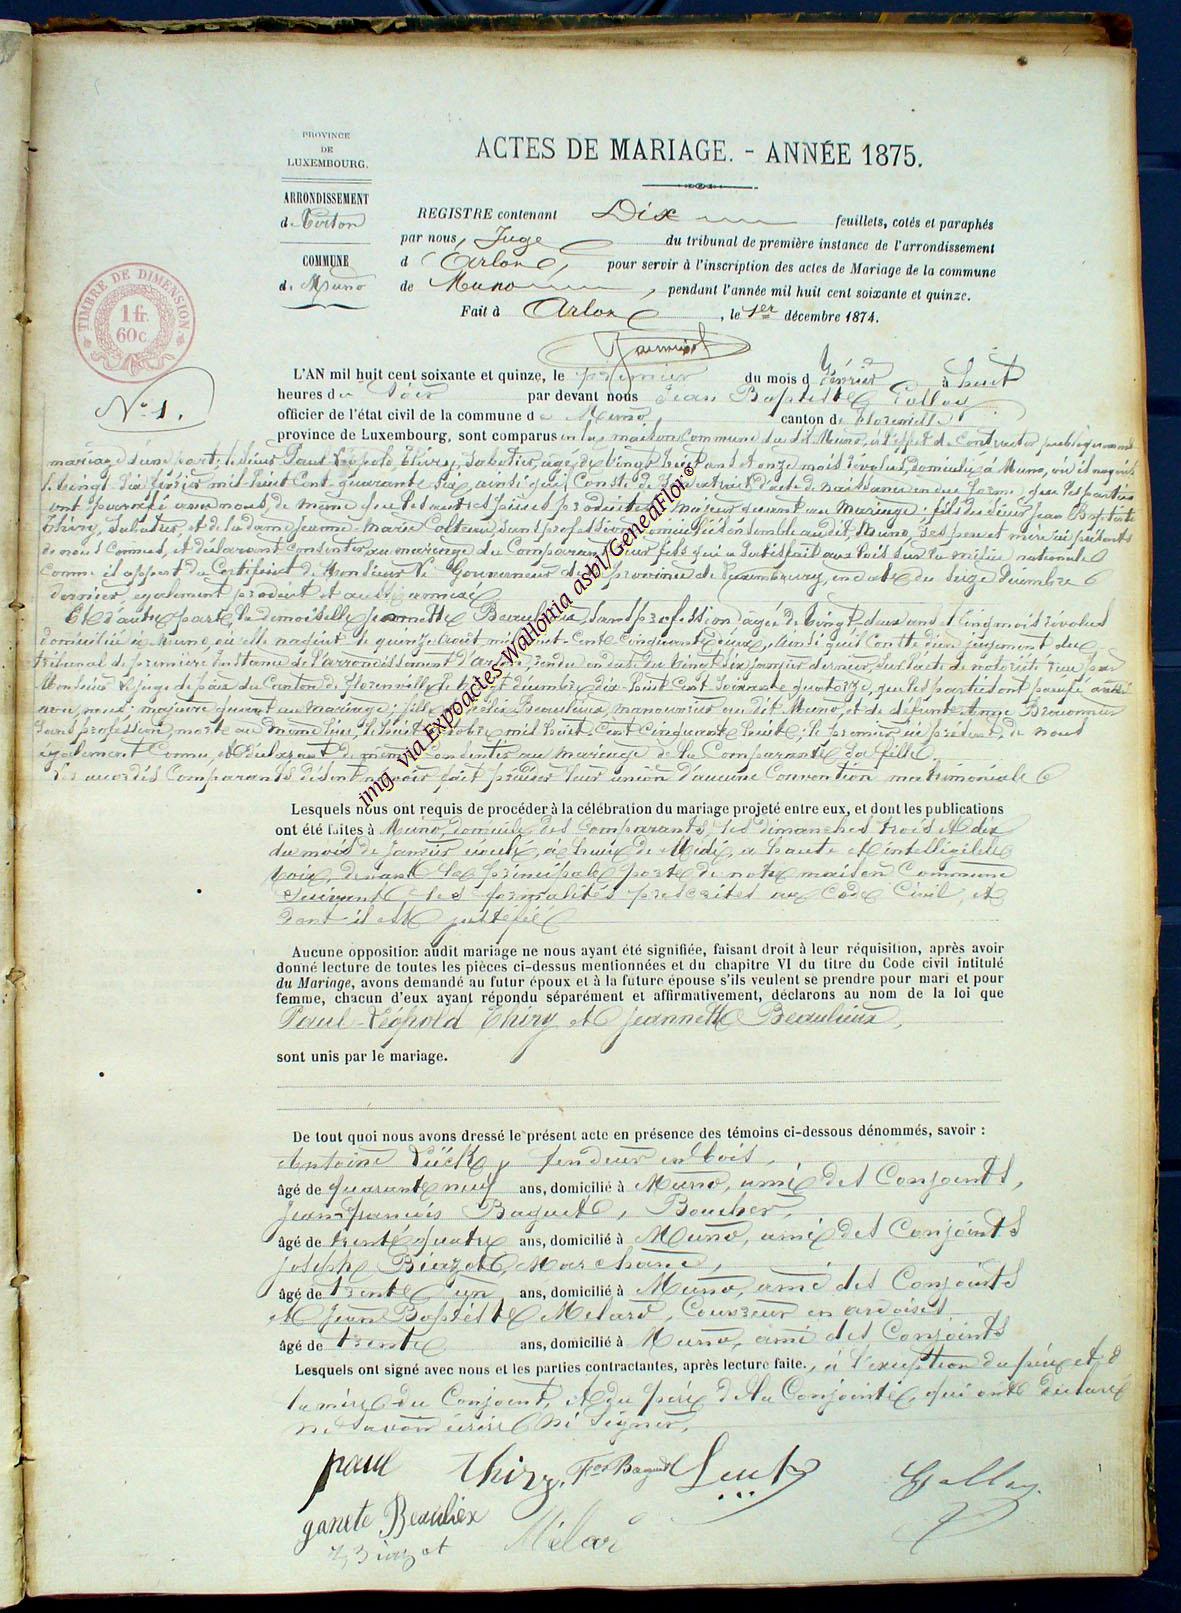 PROVINCE
DE
LUXEMBOURG.
ARRONDISSEMENT
de Virton
COMMUNE
de Muno
ACTES DE MARIAGE. - ANNÉE 1875.
REGISTRE contenant Dix feuillets, cotés et paraphés
par nous, Juge du tribunal de première instance de l'arrondissement
d'Arlon, pour servir à l'inscription des actes de Mariage de la commune
de Muno, pendant l'année mil huit cent soixante et quinze.
Fait à Arlon, le 1er décembre 1874.
TIMBRE DE DIMENSION
1 fr.
60 c.
N° 1.
L'AN mil huit cent soixante et quinze, le premier du mois de Février à huit
heures du Soir par devant nous Jean Baptiste
officier de l'état civil de la commune de Muno, canton de Florenville
province de Luxembourg, sont comparus en la maison commune du dit Muno, à l'effet de Contracter publiquement
mariage d'une part, le sieur Paul Léopold Thiry, Sabotier, agé de vingt huit ans et onze mois révolus, domicilié à Muno, où il naquit
le vingt Février mil huit Cent quarante six, ainsi que Conste de l'extrait d'acte de naissance en due forme, que les parties
ont paraphé avec nous, de même que les autres pièces produites, majeur quant au Mariage; fils du sieur Jean Baptiste
Thiry, Sabotier, et de la dame Jeanne Marie Colteau, Sans profession domiciliés ensemble audit Muno, ses père et mère ici présents
de nous Connus, et déclarant consentir au mariage du Comparant leur fils qui a Satisfait aux lois sur la milice nationale
Comme il appert du Certificat de Monsieur le Gouverneur de la province de Luxembourg, en date du Seize Décembre
dernier, egalement produit et aussi annexé
Et d'autre part, la demoiselle Jeannette Beaulieux, Sans profession agée de vingt deux ans et Cinq mois révolus
domiciliée à Muno, où elle naquit le quinze Août mil huit Cent Cinquante deux, Ainsi qu'il Conste d'un jugement du
tribunal de première Instance de l'arrondissement d'Arlon, rendu en date du vingt Six janvier dernier, sur l'acte de notoriété reçu par
Monsieur le Juge de paix du Canton de Florenville, le décembre dix-huit Cent Soixante quatorze, que les parties ont paraphé
avec nous; majeure quant au mariage; fille Beaulieux, manouvrier audit Muno, et de défunte Anne
Sans profession, morte au même lieu, le huit octobre mil huit Cent Cinquante huit; le premier ici présent, de nous
également Connu, et déclarant de même Consentir au mariage de la Comparante Sa fille.
Les susdits Comparants disent n'avoir fait précéder leur union d'aucune Convention matrimoniale
Lesquels nous ont requis de procéder à la célébration du mariage projeté entre eux, et dont les publications
ont été faites à Muno, domicile des Comparants, les dimanches trois et dix
du mois de Janvier écoulé, à heure de Midi, à haute et intelligible
voix, devant la principale porte de notre maison Commune
Suivant les formalités prescrites au Code Civil, et
dont il est justifié
Aucune opposition audit mariage ne nous ayant été signifiée, faisant droit à leur réquisition, après avoir
donné lecture de toutes les pièces ci-dessus mentionnées et du chapitre VI du titre du Code civil intitulé
du Mariage, avons demandé au futur époux et à la future épouse s'ils veulent se prendre pour mari et pour
femme, chacun d'eux ayant répondu séparément et affirmativement, déclarons au nom de la loi que
Paul-Léopold Thiry et Jeannette Beaulieux,
sont unis par le mariage.
De tout quoi nous avons dressé le présent acte en présence des témoins ci-dessous dénommés, savoir :
Antoine Lück, fendeur en bois,
âgé de quarante neuf ans, domicilié à Muno, ami des Conjoints,
Jean-François Baquet, Boucher,
âgé de trente quatre ans, domicilié à Muno, ami des Conjoints
Joseph Biazot, Marchand,
âgé de trente un ans, domicilié à Muno, ami des Conjoints
et Jean Baptiste Melard, Couvreur en ardoises
âgé de trente ans, domicilié à Muno, ami des Conjoints
Lesquels ont signé avec nous et les parties contractantes, après lecture faite, à l'exception du père et de
la mère du Conjoint, et du père de la Conjointe, qui ont déclaré
ne Savoir écrire ni Signer.
paul Thiry, Fois Baquet
ganete Beauliex
Mélar
img via Expoactes-Wallonia asbl/GeneaFlor ©